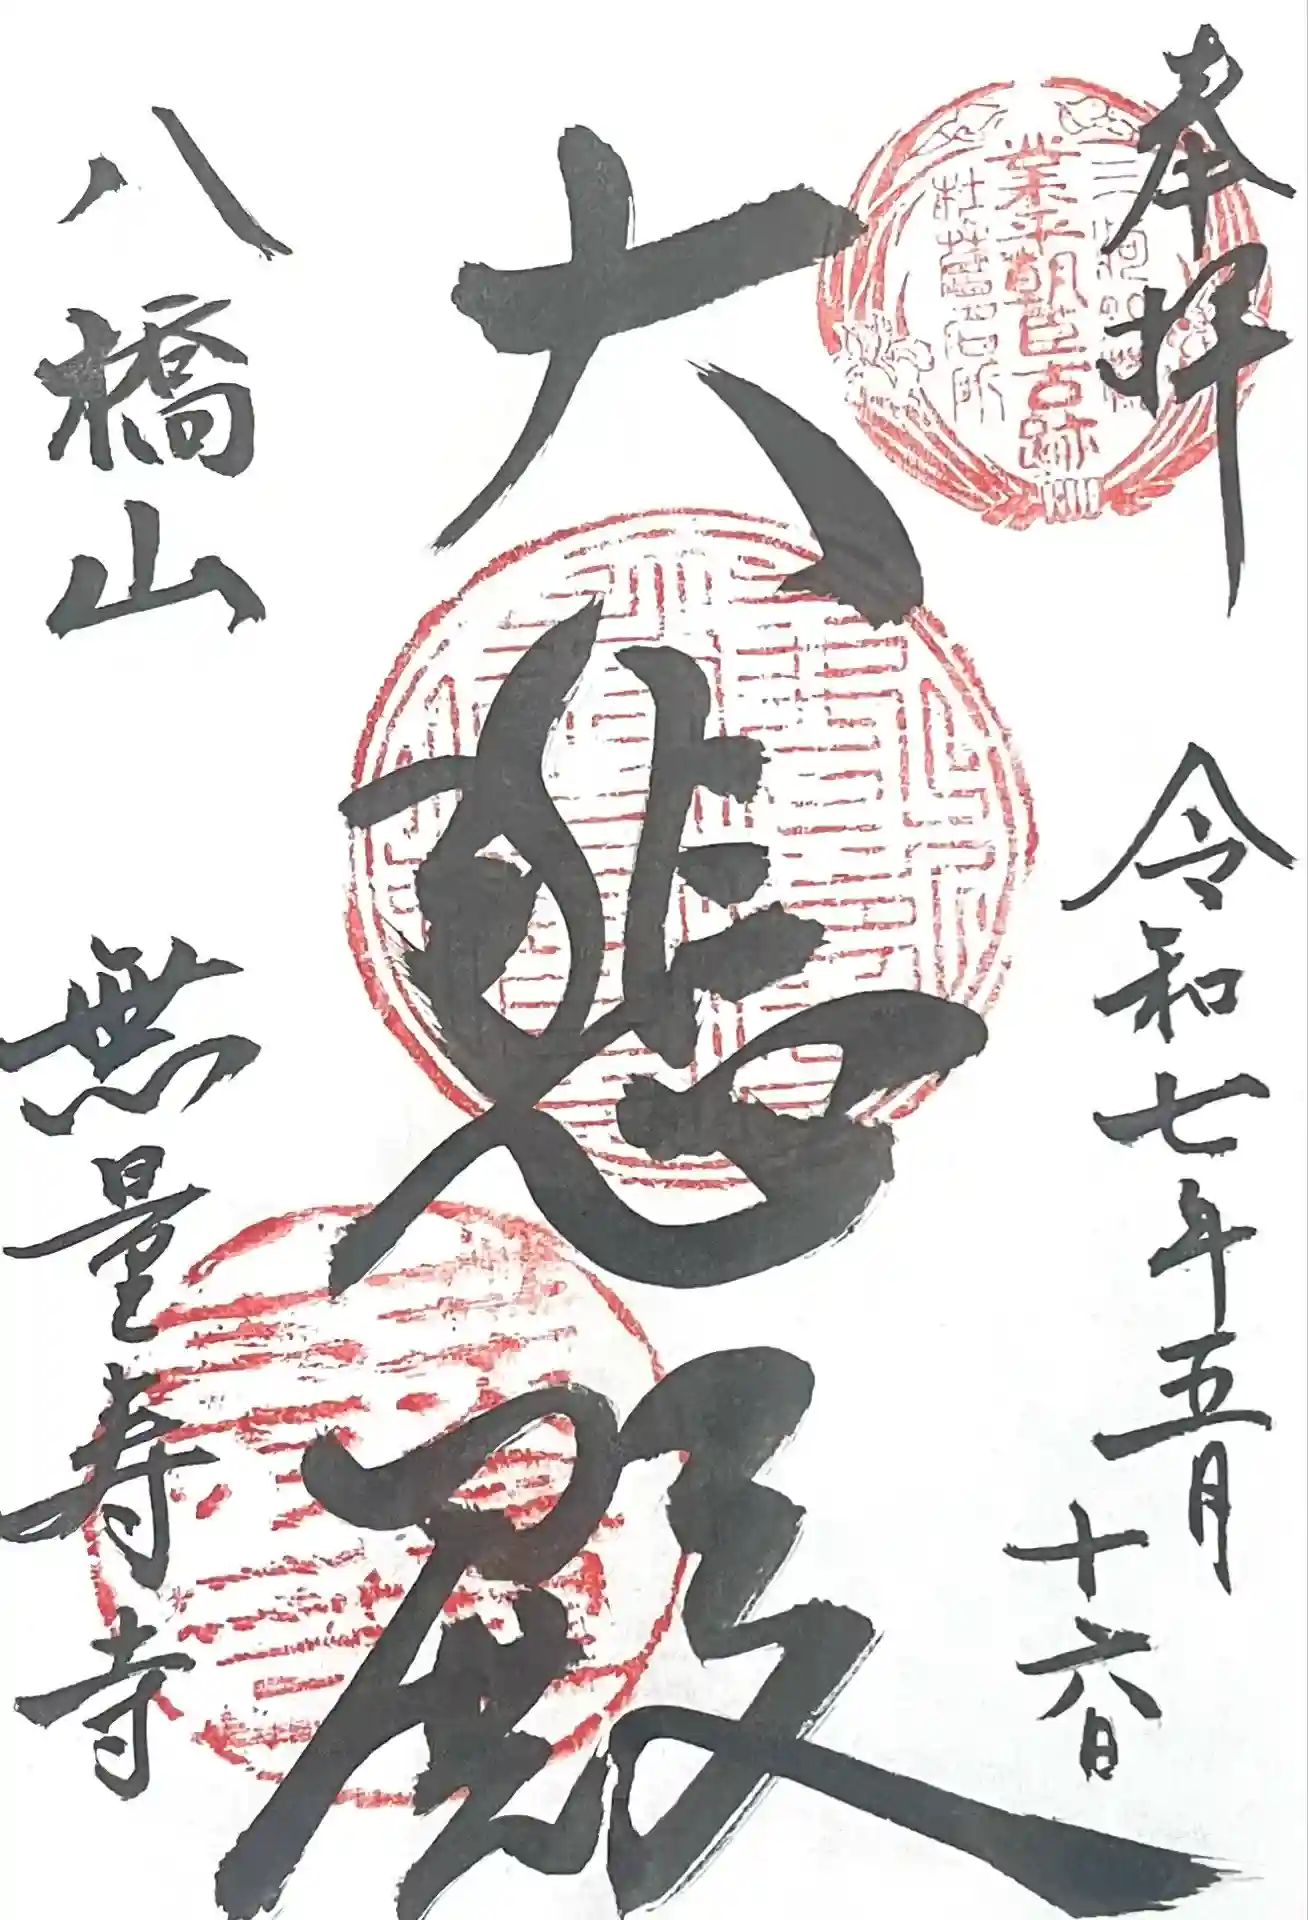 奉拝
令和七年五月
十六日
業平朝臣古跡
杜若名所
大悲殿
八橋山
無量寿寺